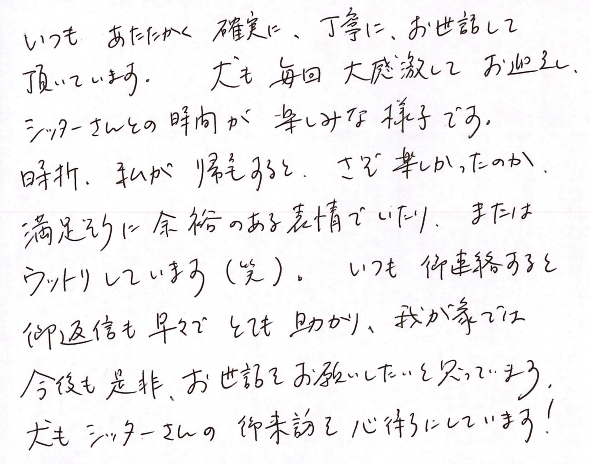 いつも あたたかく 確実に、丁寧に、お世話して
頂いています。 犬も 毎回 大感激して お迎えし、
シッターさんとの 時間が 楽しみな 様子です。
時折、私が 帰宅すると、さぞ 楽しかったのか、
満足そうに 余裕のある 表情で いたり、または
ウットリしています(笑)。 いつも 御連絡すると
御返信も 早々で とても 助かり、我が家では
今後も 是非、お世話を お願いしたいと 思っています。
犬も シッターさんの 御来訪を 心待ちにしています!